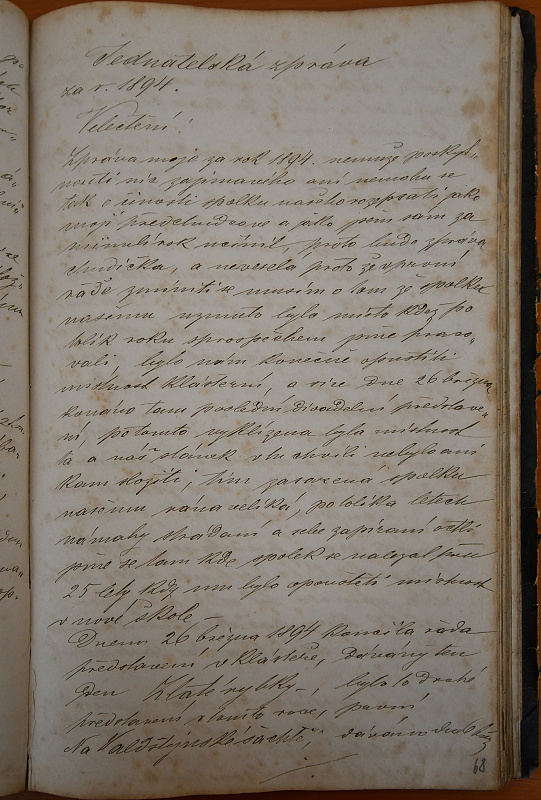 Jednatelská zpráva
za r. 1894.
Velectění!
Zpráva moje za rok 1894. nemůže poskyt-
nouti nic zajímavého ani nemohu se
tak o činosti spolku našeho rozepsati jako
moji předchůdcové a jako jsem sám za
minulý rok učinil, proto bude zpráva
chudičká, a neveselá proto že v první
řadě zmíniti se musím o tom že spolku
našemu vzmuto bylo místo kdež po
tolik roku s prospěchem jsme praco-
vali, bylo nám konečně opustiti
místnost klášterní, a sice dne 26 března
konáno tam poslední divadelní představe-
ní, po tomto vyklizena byla místnost
ta a náš stánek v tu chvíli nebylo ani
kam složiti, tím zasazena spolku
našemu rána veliká, po tolika letech
námahy strádání a sebe zapírání octli
jsme se tam kde spolek se nalezal před
25 lety kdy mu bylo opustiti místnost
v nové škole -
Dnem 26 března 1894 končila řada
představení v klášteře, dávány ten
den Zlaté rybky -, bylo to druhé
představení v tomto roce, první
Na Valdštýnské šachtě, dáváno dne
68